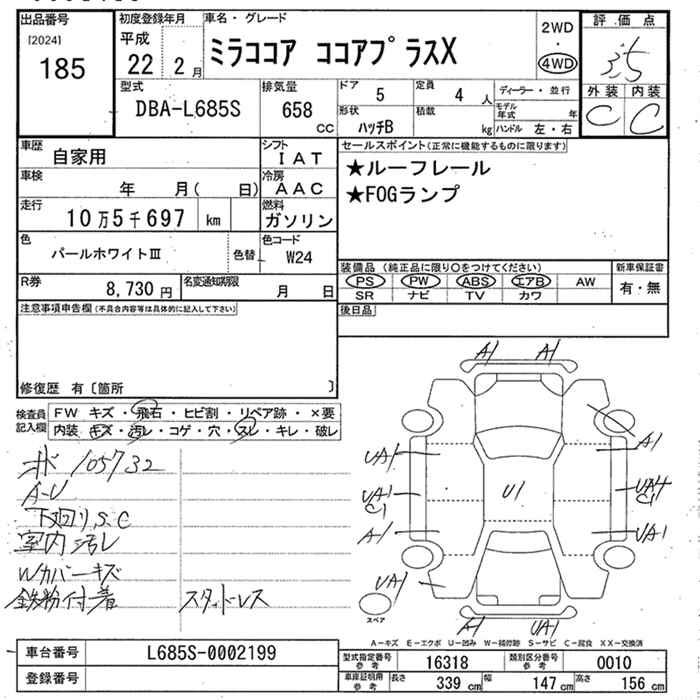 出品番号
[2024]
185
初度登録年月
平成
22 2月
車名・グレード
ミラココア ココアプラスX
2WD
4WD
評価点
3.5
外装 内装
C C
型式
DBA-L685S
排気量
658
cc
ドア
5
定員
4人
形状
ハッチB
積載
kg
ディーラー・並行
モデル年式 年
ハンドル 左・右
車歴
自家用
シフト
IAT
車検
年 月( 日)
冷房
AAC
走行
10万5千697 km
燃料
ガソリン
色
パールホワイトⅢ
色替
色コード
W24
R券
8,730円
名変通知期限
月 日
セールスポイント(正常に機能するものに限ります)
★ルーフレール
★FOGランプ
装備品(純正品に限り○をつけてください)
PS PW ABS エアB AW
SR ナビ TV カワ
新車保証書
有・無
後日品
注意事項申告欄(不具合内容等は具体的に記入して下さい)
修復歴 有〔箇所 〕
検査員記入欄
FW キズ・飛石・ヒビ割・リペア跡・×要
内装 キズ・汚レ・コゲ・穴・スレ・キレ・破レ
105732
A-U
下廻りS.C
室内汚レ
Wカバーキズ
鉄粉付着 スタッドレス
A1 A1
A1
UA1
UA1
C1
U1
UA1
C1
A1
UA1
UA1
A1 UA1
スペア
A-キズ E-エクボ U-凹み W-補修跡 S-サビ C-腐食 XX-交換済
車台番号
L685S-0002199
登録番号
型式指定番号 参考
16318
類別区分番号 参考
0010
車庫証明用 参考
長さ 339cm 幅 147cm 高さ 156cm